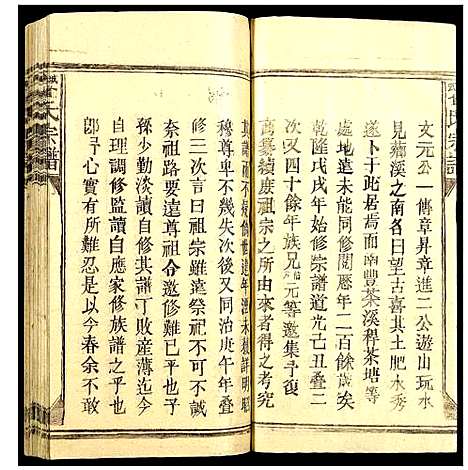 文元公一傳章昇章進二公遊山玩水
見蘓溪之南名曰望古喜其土肥水秀
遂卜于此居焉而南豐茶溪稗茶塘等
處地遠未能同修閱歷年二百餘歲矣
乾隆戊戌年始修宗譜道光己丑疊二
次又四十餘年族兄元等邀集予復
纂續庶祖宗之所由來者得之考究
穆尊卑不幾失次後又同治庚午年叠
修三次言曰祖宗雖遠祭祀不可不誠
奈祖路要遠尊祖令邀修難已乎也予
孫少勤淡讀自修其譜丁財產薄迄今
自理調修監讀自應家修族譜之乎不
即予心者有所難忍是以今春余不敢
氏宗譜